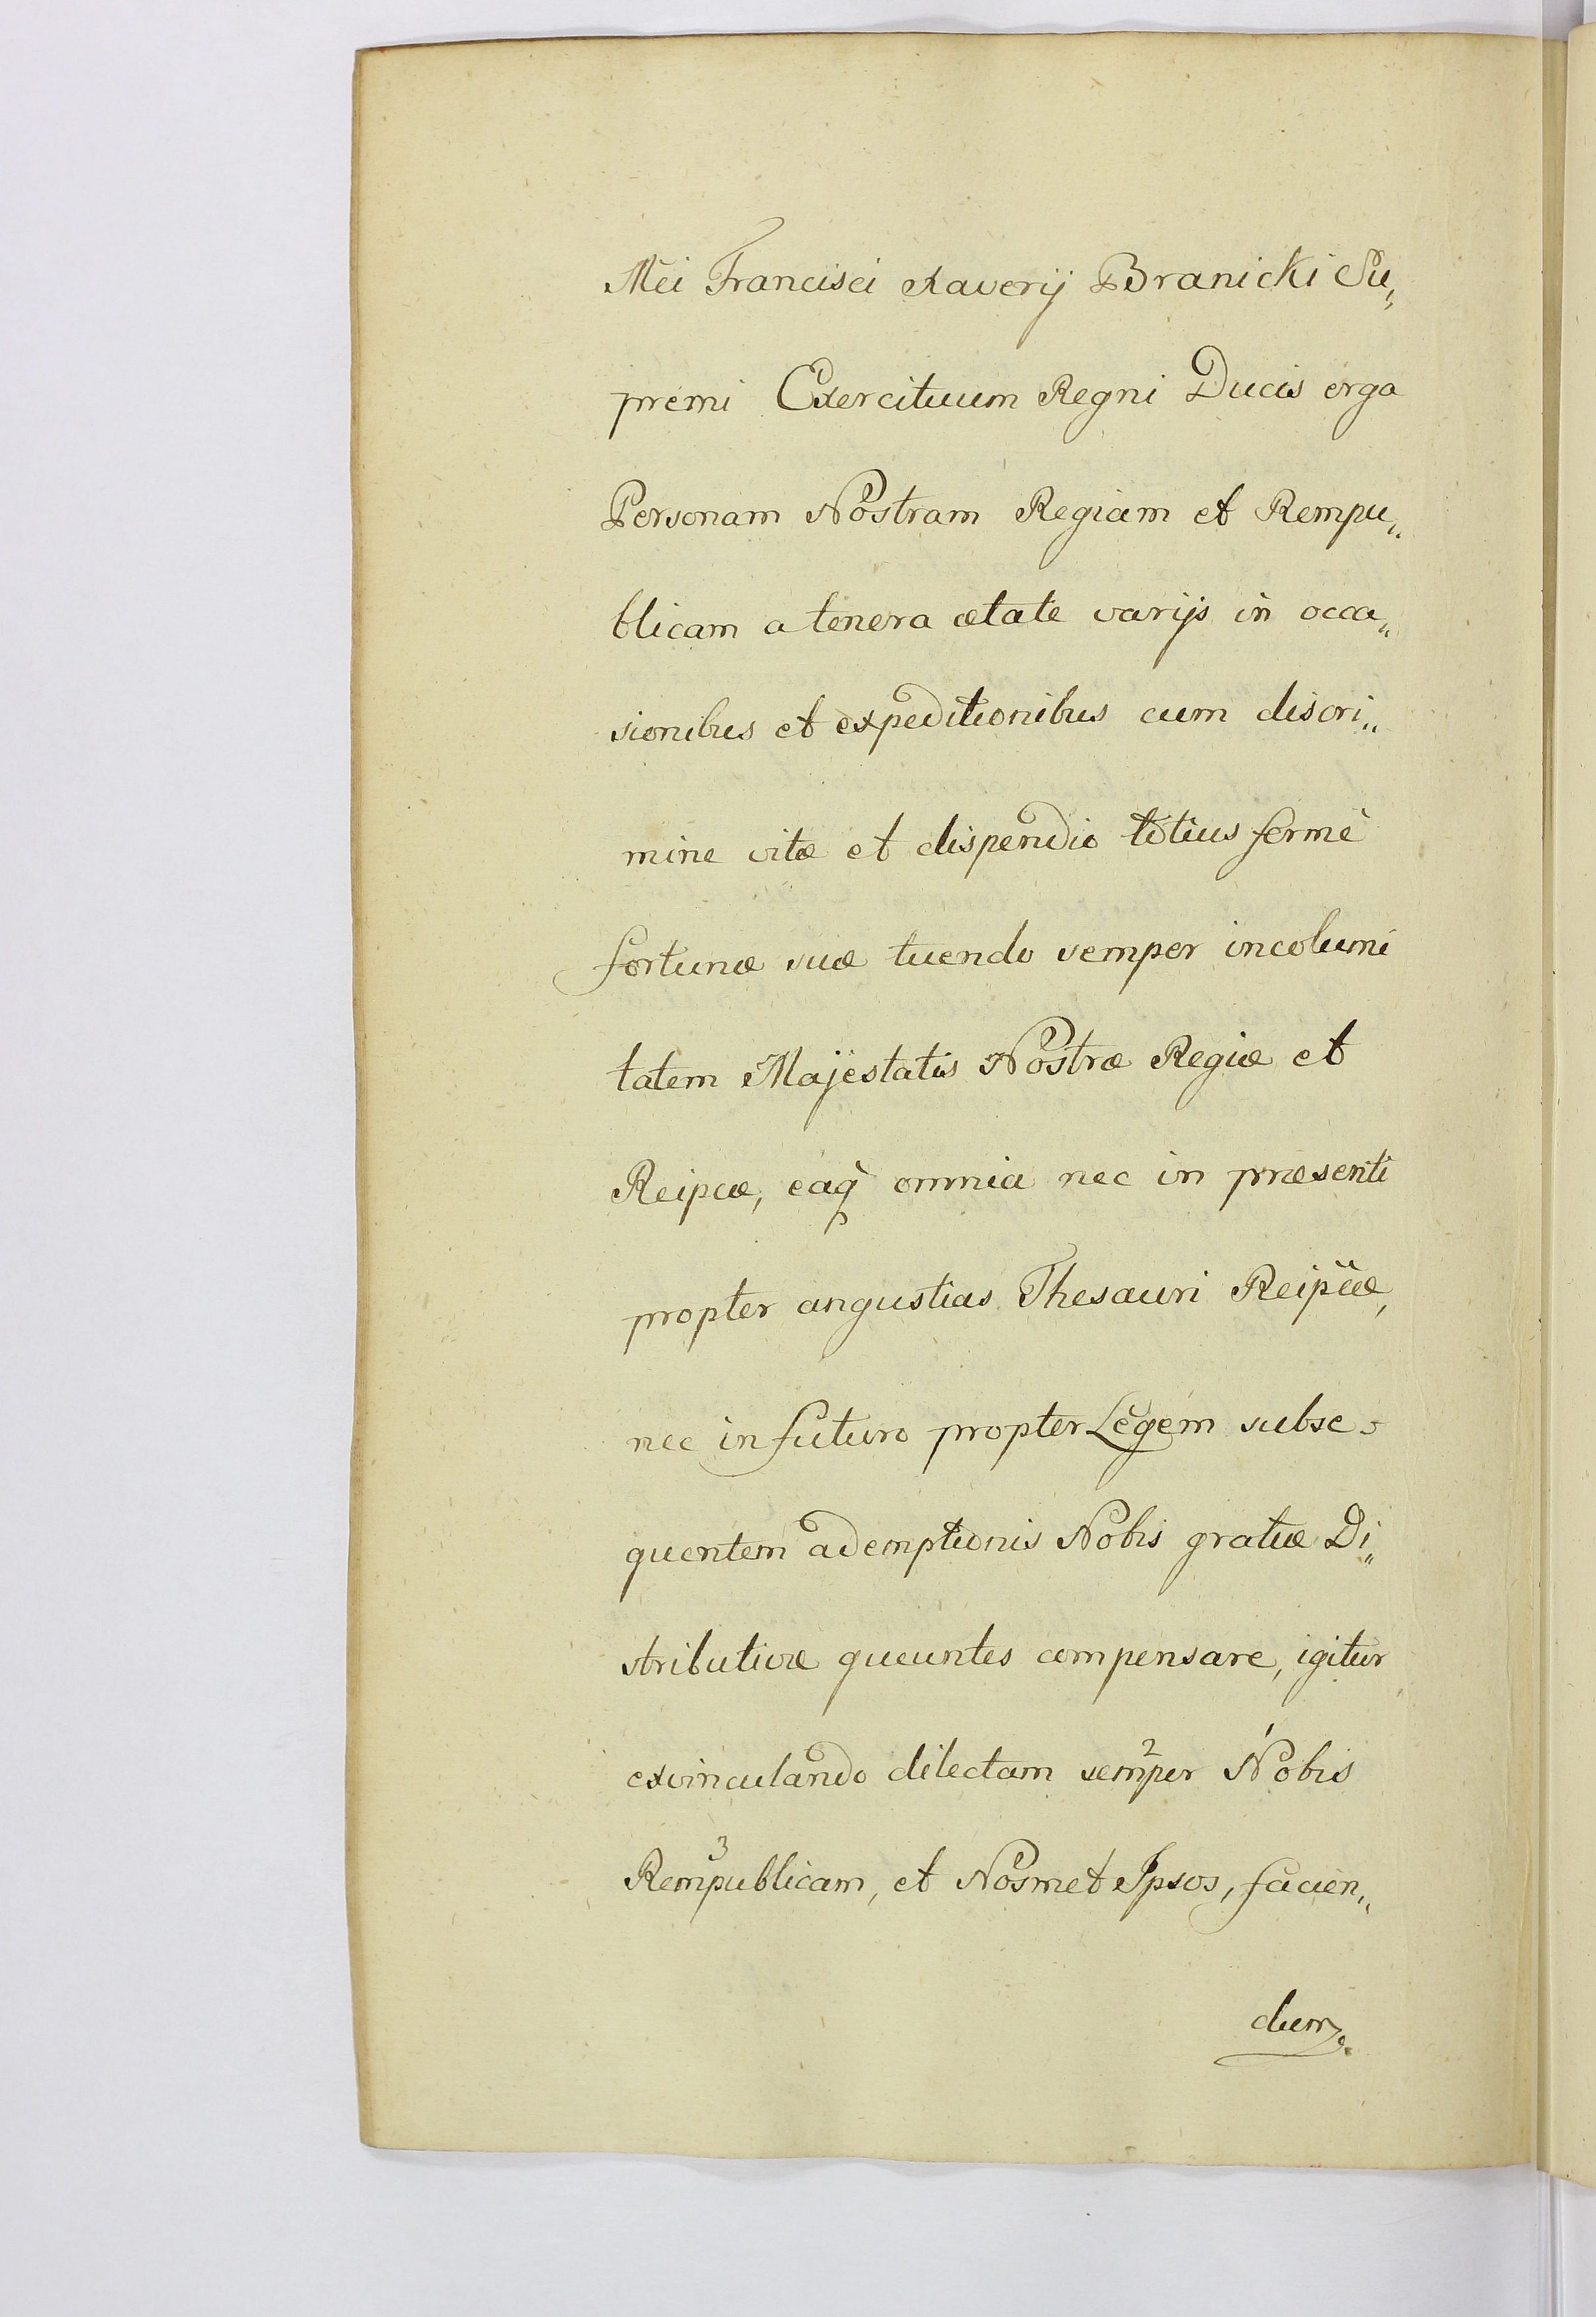 Mei Francisci Xaverij Branicki Su„
premi Exercituum Regni Ducis erga
Personam Nostram Regiam et Rempu„
blicam a tenera ætate varijs in occa„
sionibus et expeditionibus cum discri„
mine vitæ et dispendio totius fermè
fortunæ suæ tuendo semper incolumi
tatem Majestatis Nostræ Regiæ et
Reipcæ, eaq̀ omnia nec in præsenti
propter angustias Thesauri Reipcæ,
nec in futuro propter Legem subse-
quentem ademptionis Nobis gratiæ Di„
stributivæ queuntes compensare, igitur
exvinculando dilectam semper 2 Nobis 1
Rempublicam 3, et Nosmet Ipsos, facien„
dum.